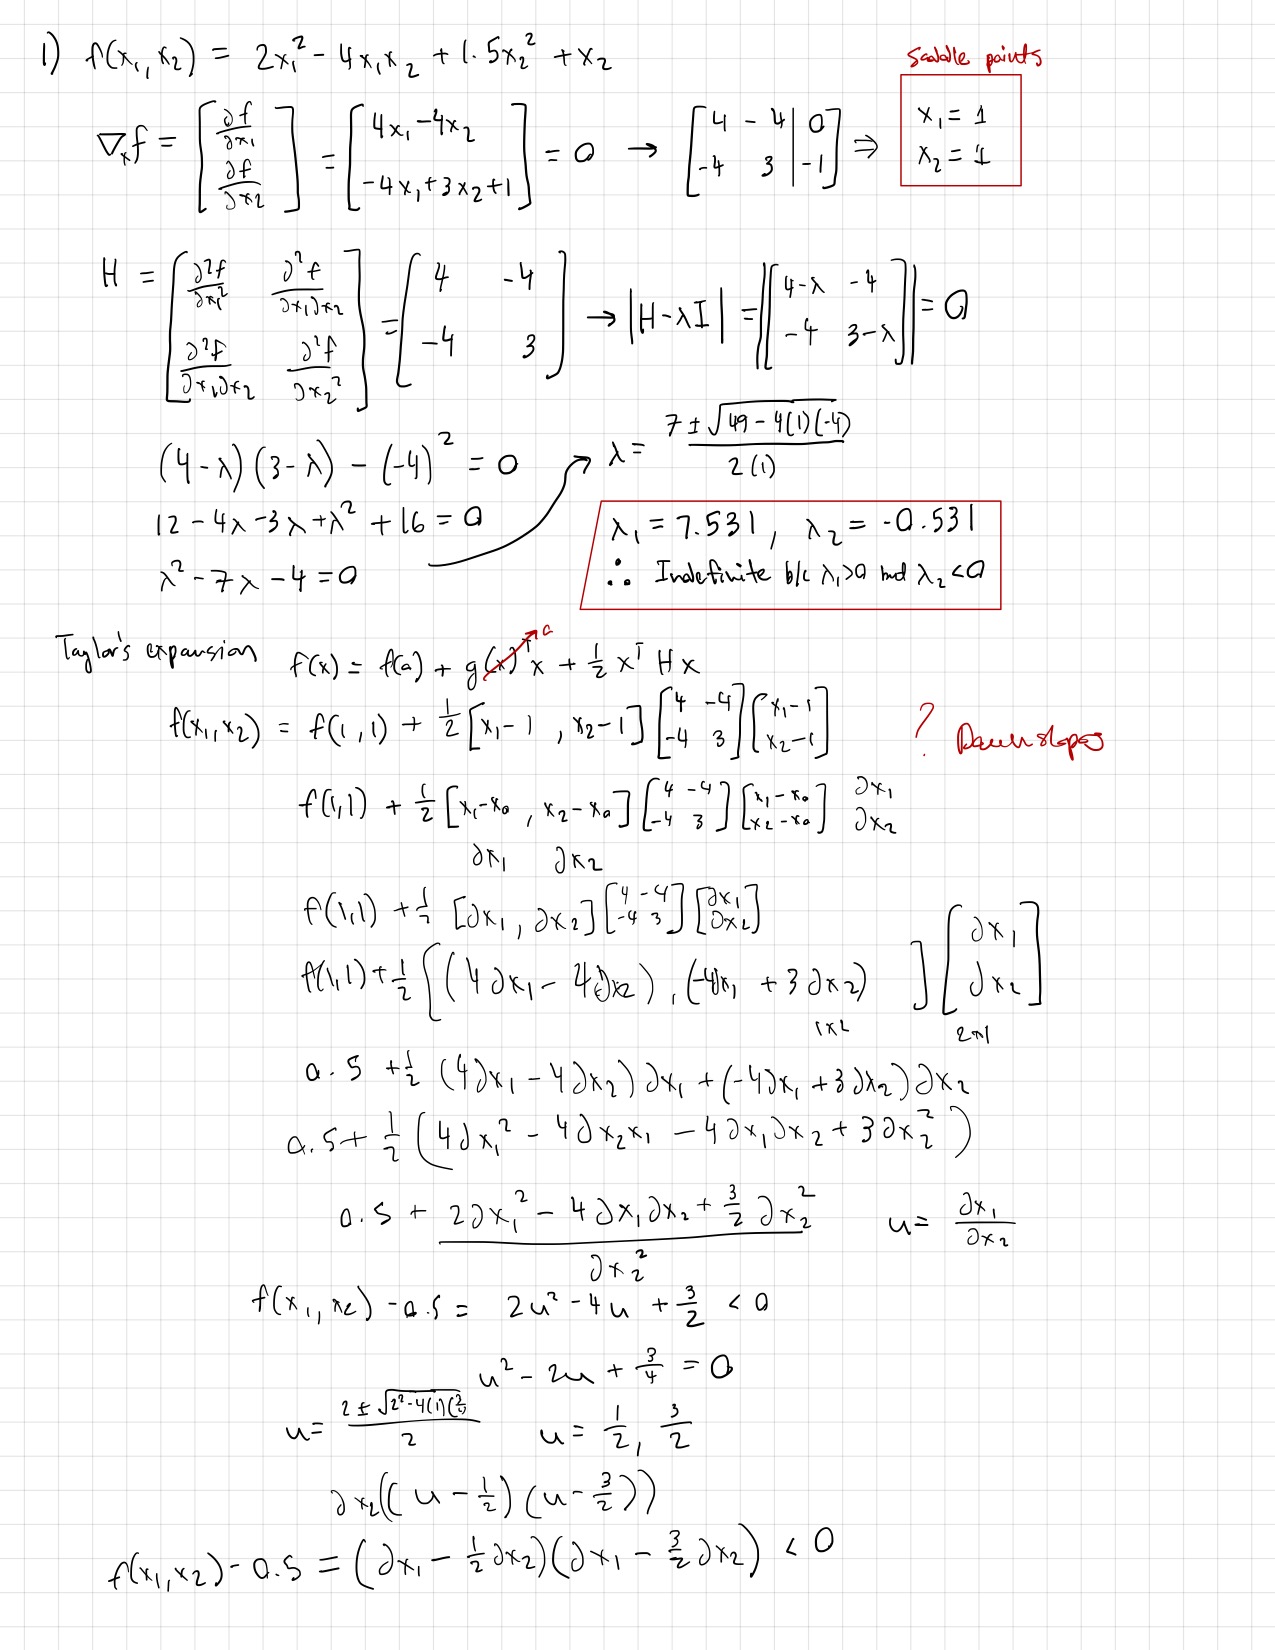 1) f(x₁, x₂) = 2x₁² - 4x₁x₂ + 1.5x₂² + x₂
Saddle points
∇ₓf = [∂f/∂x₁ ; ∂f/∂x₂] = [4x₁ - 4x₂ ; -4x₁ + 3x₂ + 1] = 0 → [4 -4 | 0 ; -4 3 | -1] ⇒ x₁ = 1
x₂ = 1
H = [∂²f/∂x₁² ∂²f/∂x₁∂x₂ ; ∂²f/∂x₁∂x₂ ∂²f/∂x₂²] = [4 -4 ; -4 3] → |H - λI| = |[4-λ -4 ; -4 3-λ]| = 0
(4-λ)(3-λ) - (-4)² = 0
λ = (7 ± √(49 - 4(1)(-4))) / 2(1)
12 - 4λ - 3λ + λ² + 16 = 0
λ² - 7λ - 4 = 0
λ₁ = 7.531, λ₂ = -0.531
∴ Indefinite b/c λ₁>0 and λ₂<0
Taylor's expansion f(x) = f(a) + g(x)ᵀx + ½ xᵀ H x
0
f(x₁, x₂) = f(1, 1) + ½ [x₁-1, x₂-1] [4 -4 ; -4 3] [x₁-1 ; x₂-1]
? Down slopes
f(1,1) + ½ [x₁-x₀, x₂-x₀] [4 -4 ; -4 3] [x₁-x₀ ; x₂-x₀] ∂x₁
∂x₂
∂x₁ ∂x₂
f(1,1) + ½ [∂x₁, ∂x₂] [4 -4 ; -4 3] [∂x₁ ; ∂x₂]
f(1,1) + ½ [(4∂x₁ - 4∂x₂), (-4∂x₁ + 3∂x₂)] [∂x₁ ; ∂x₂]
1x2 2x1
0.5 + ½ (4∂x₁ - 4∂x₂)∂x₁ + (-4∂x₁ + 3∂x₂)∂x₂
0.5 + ½ (4∂x₁² - 4∂x₂x₁ - 4∂x₁∂x₂ + 3∂x₂²)
0.5 + (2∂x₁² - 4∂x₁∂x₂ + 3/2 ∂x₂²) / ∂x₂² u = ∂x₁/∂x₂
f(x₁, x₂) - 0.5 = 2u² - 4u + 3/2 < 0
u² - 2u + 3/4 = 0
u = (2 ± √(2² - 4(1)(3/4))) / 2 u = 1/2, 3/2
∂x₂((u - 1/2)(u - 3/2))
f(x₁, x₂) - 0.5 = (∂x₁ - ½∂x₂)(∂x₁ - 3/2 ∂x₂) < 0